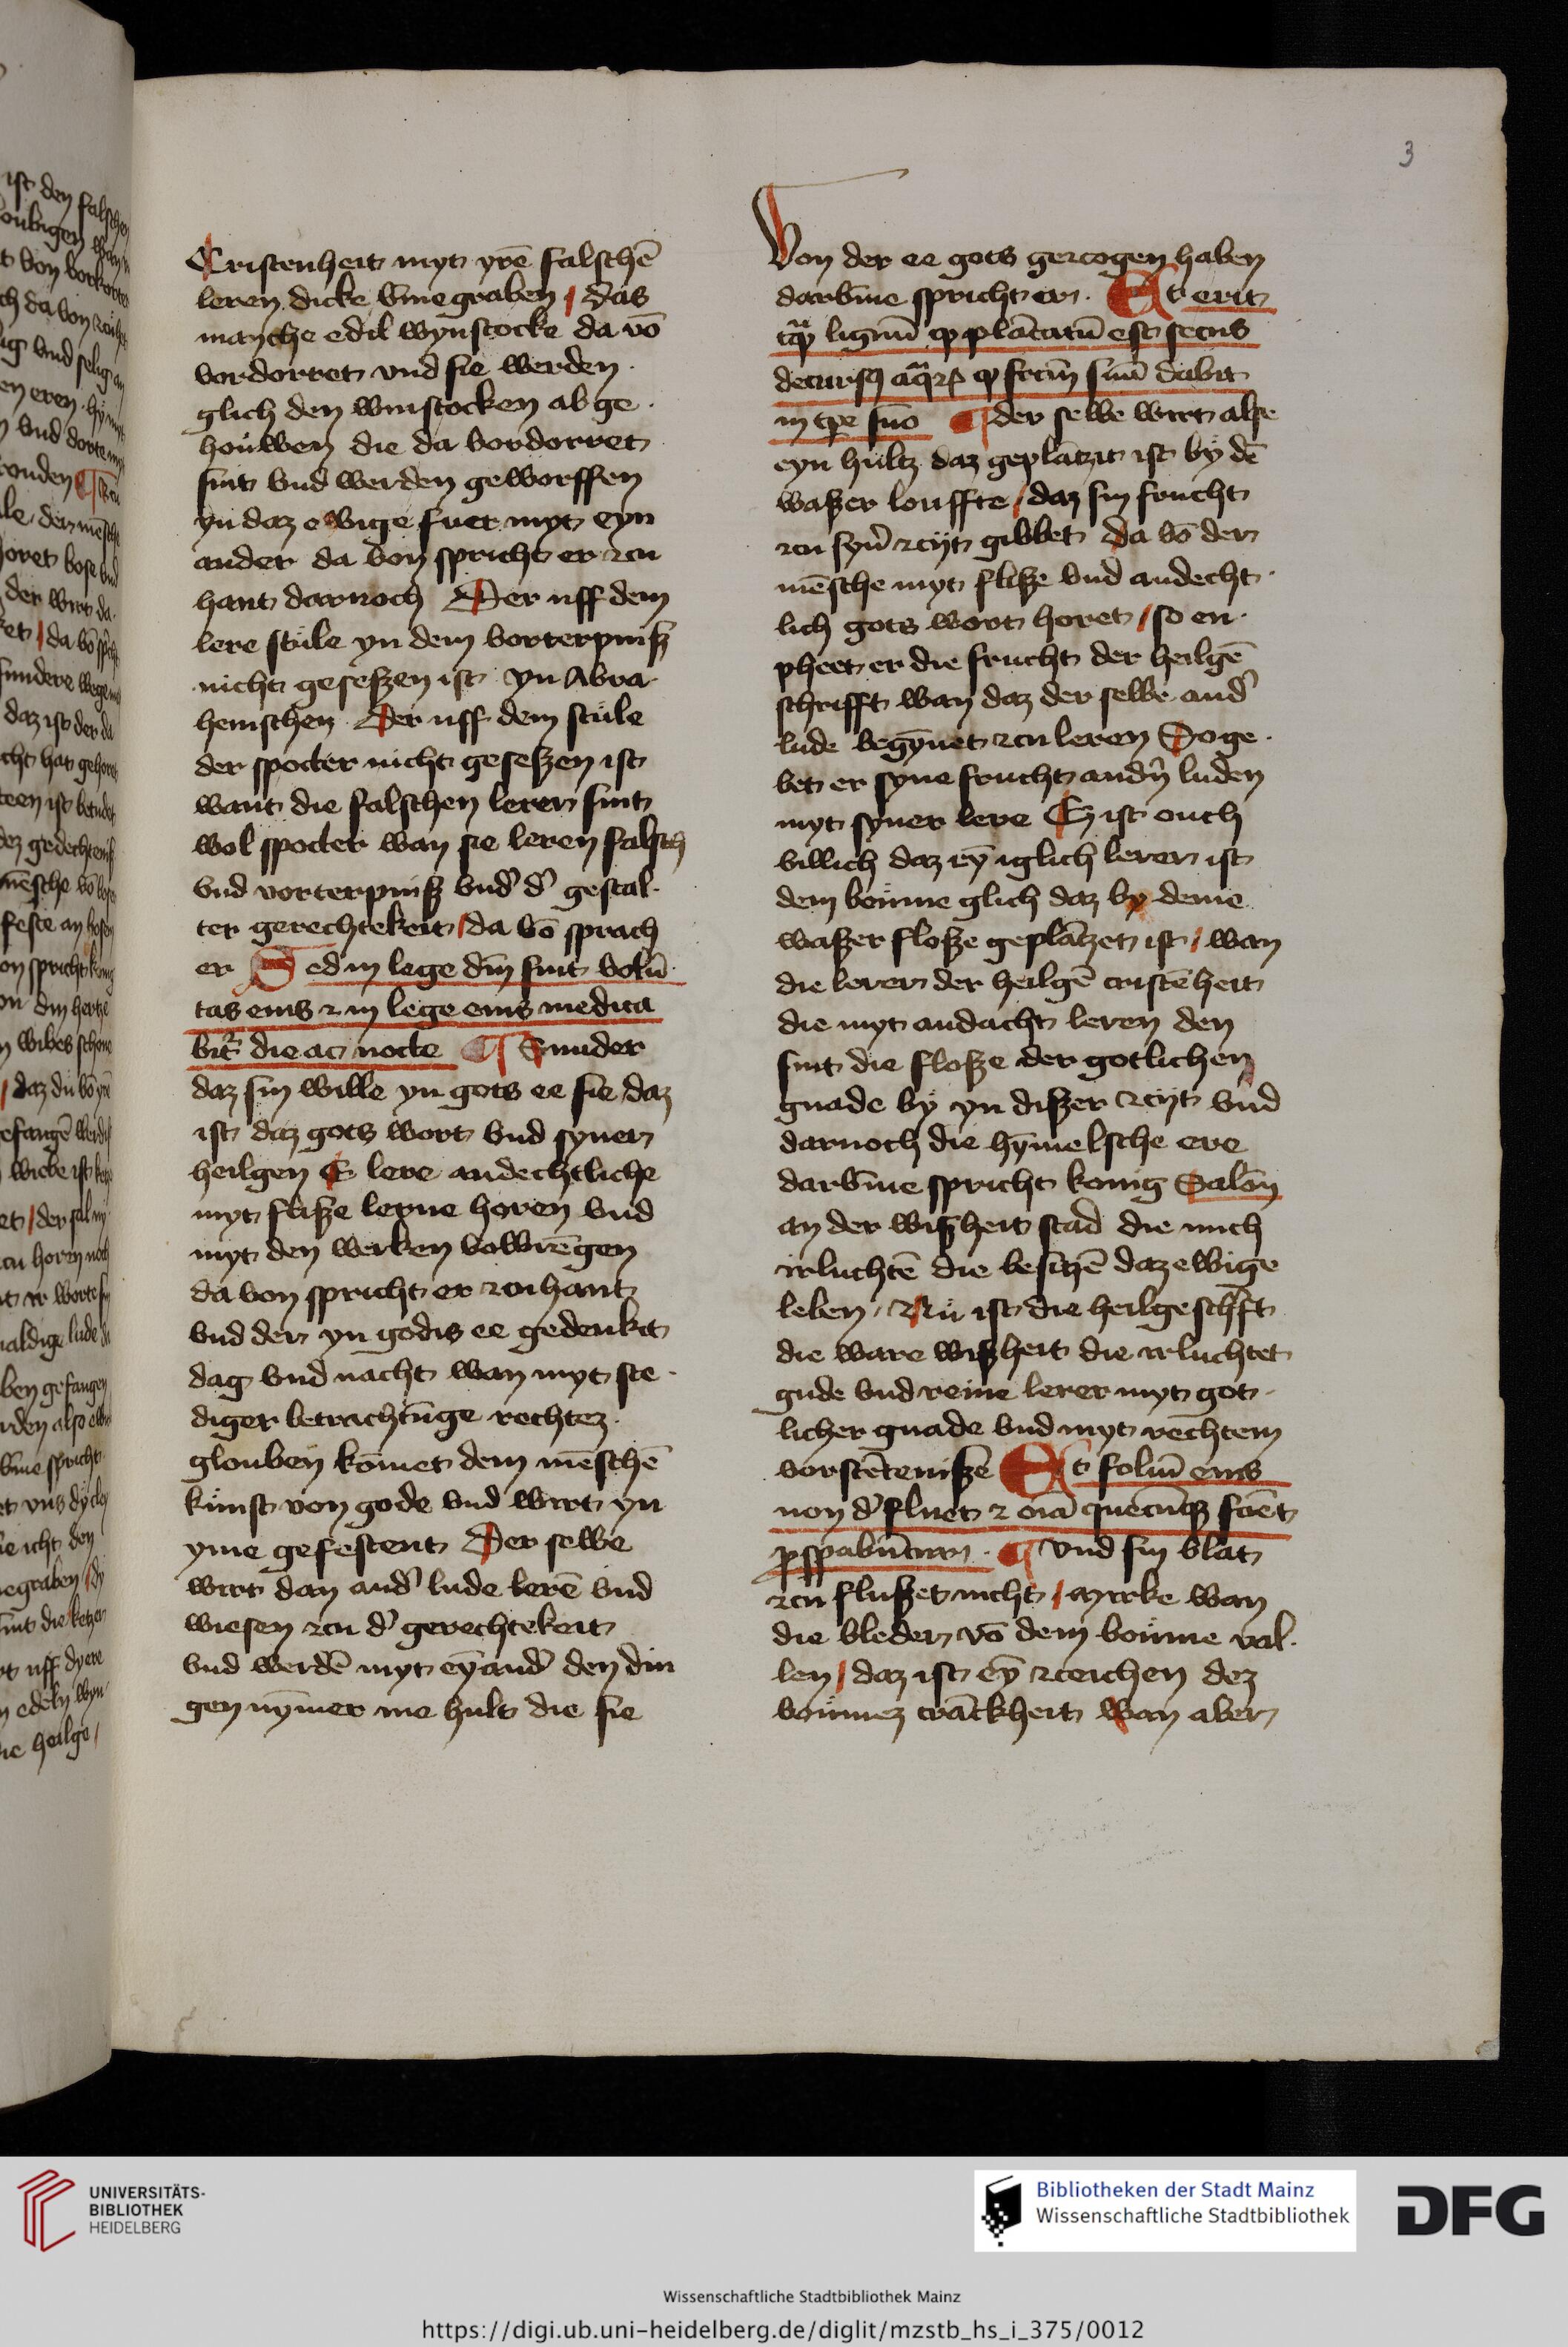 3
Cristenheit myt yrē falschē
leren dicke vm̄egraben / das
mancħe edil wynstocke da vō
vordorret vnd sie werden
glich den winstocken abge
houwen die da vordorret
sint vnd werden geworffen
yn daz ewige fuer myt eyn
ander da von spricht er zcu
hant darnoch Der uff dem
lere stule yn dem vorterpniß
nicht geseßzen ist yn Abra
hemschen Der uff dem stule
der spotter nicht geseßzen ist
want die falschen lerer sint
wol spotter wan sie leren falsch
vnd vorterpniß vnd d' gestal
ter gerechtekeit / da vō sprach
er Sed in lege dn̄i fuit volū
tas eius ⁊ in lege eius medita
bit᷑ die ac nocte ¶ Sunder
daz sin wille yn gots ee sie daz
ist daz gots wort vnd syner
heilgen E lere andechtliche
myt fliße lerne horen vnd
myt den werken volbrēgen
da von spricht er zcu hant
vnd der yn godis ee gedenkit
dag vnd nacht wan myt ste
diger betrachtūge rechtez
glouben kōmet dem mēschē
kunst von gode vnd wirt yn
yme gefestent Der selbe
wirt dan and' lude lerē vnd
wiesen zcu d' gerechtekeit
vnd werdē myt eȳand' den din
gen nȳmer me hult die sie
Von der ee gots gezcogen haben
darvm̄e spricht er Et erit
tāq̄ lignū qͥ plātatū est secus
decursꝯ aq̄rꝝ qͥ fructū suū dabit
in tp̄e suo ¶ der selbe wirt alse
eyn hultz daz geplātzit ist by dē
waßer louffte / daz sin frucht
zcu syn' zcijt gibbet da vō der
mēsche myt fliße vnd andecht
lich gots wort horet / so en
pheet er die frucht der heilgē
schrifft wan daz der selbe and'
lude begȳnet zcu leren So ge
bet er syne frucht andn̄ luden
myt syner lere Es ist ouch
billich daz eȳ iglich lerer ist
dem boume glich daz by deme
waßer floße geplātzet ist / wan
die lerer der heilgē cristēheit
die myt andacht leren den
sint die floße der gotlichen
gnade by yn dißer zcijt vnd
darnoch die hȳmelsche ere
darvm̄e spricht konig Salōn
an der wißheit stad die mich
irluchtē die besitzē daz ewige
leben / Nu ist die heilge schrift
die ware wißheit die irluchtet
gude vnd reine lerer myt got
licher gnade vnd myt rechtem
vorstēteniße Et foliū eius
non d'fluet ⁊ om̄ia quecūqꝫ faciēt
ꝓsperabūtur ¶ Vnd sin blat
zcu flußet nicht / mercke wan
die bleder vō dem boume val
len / daz ist eȳ zceichen dez
boumez crāckheit Wan aber
UNIVERSITÄTS-
BIBLIOTHEK
HEIDELBERG
Bibliotheken der Stadt Mainz
Wissenschaftliche Stadtbibliothek
DFG
Wissenschaftliche Stadtbibliothek Mainz
https://digi.ub.uni-heidelberg.de/diglit/mzstb_hs_i_375/0012